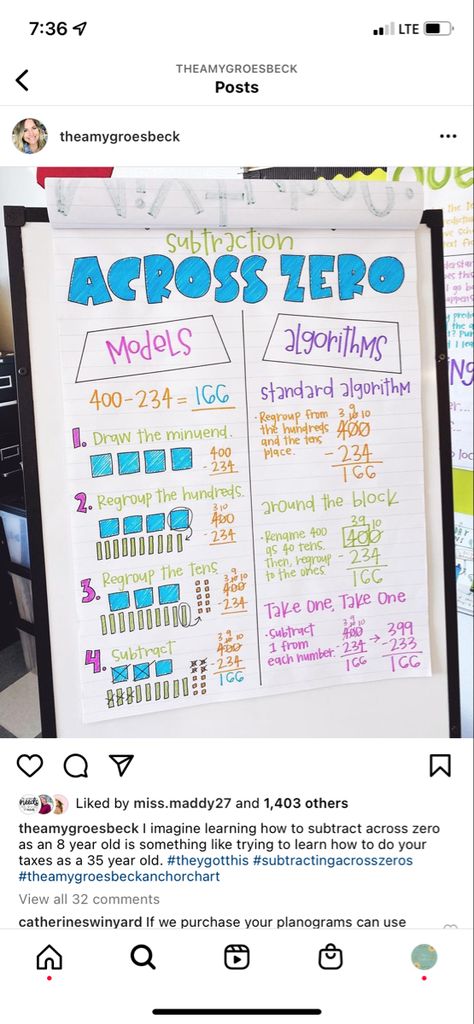 7:36
LTE
THEAMYGROESBECK
Posts
theamygroesbeck
subtraction
ACROSS ZERO
Models
400-234 = 166
1. Draw the minuend.
400
- 234
2. Regroup the hundreds.
3 10
400
- 234
3. Regroup the Tens
9
3 10 10
400
- 234
4. Subtract
9
3 10 10
400
- 234
166
algorithms
standard algorithm
• Regroup from
the hundreds
and the tens
place.
9
3 10 10
400
- 234
166
around the block
• Rename 400
as 40 tens.
Then, regroup
to the ones.
39 10
400
- 234
166
Take one, Take One
• Subtract
1 from
each number.
9
3 10 10
400
- 234
166
→
399
- 233
166
Liked by miss.maddy27 and 1,403 others
theamygroesbeck I imagine learning how to subtract across zero
as an 8 year old is something like trying to learn how to do your
taxes as a 35 year old. #theygotthis #subtractingacrosszeros
#theamygroesbeckanchorchart
View all 32 comments
catherineswinyard If we purchase your planograms can use